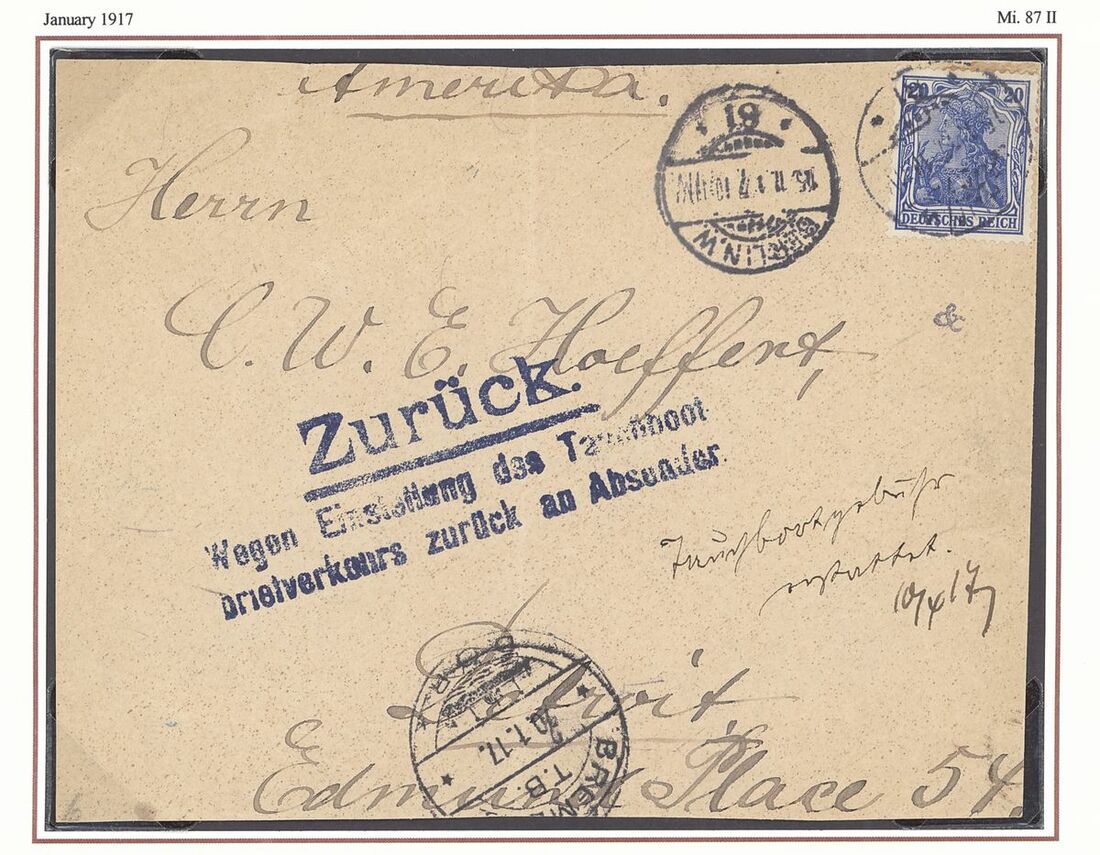 January 1917
Mi. 87 II
Amerika.
20 20
DEUTSCHES REICH
BERLIN.W
Herrn
C. W. E. Hoeffert,
Zurück.
Wegen Einstellung des Tauchboot
briefverkehrs zurück an Absender.
Tauchbootgebühr
erstattet.
10/4 17
Detroit,
Edmund Place 54.
30.1.17.
T.B.